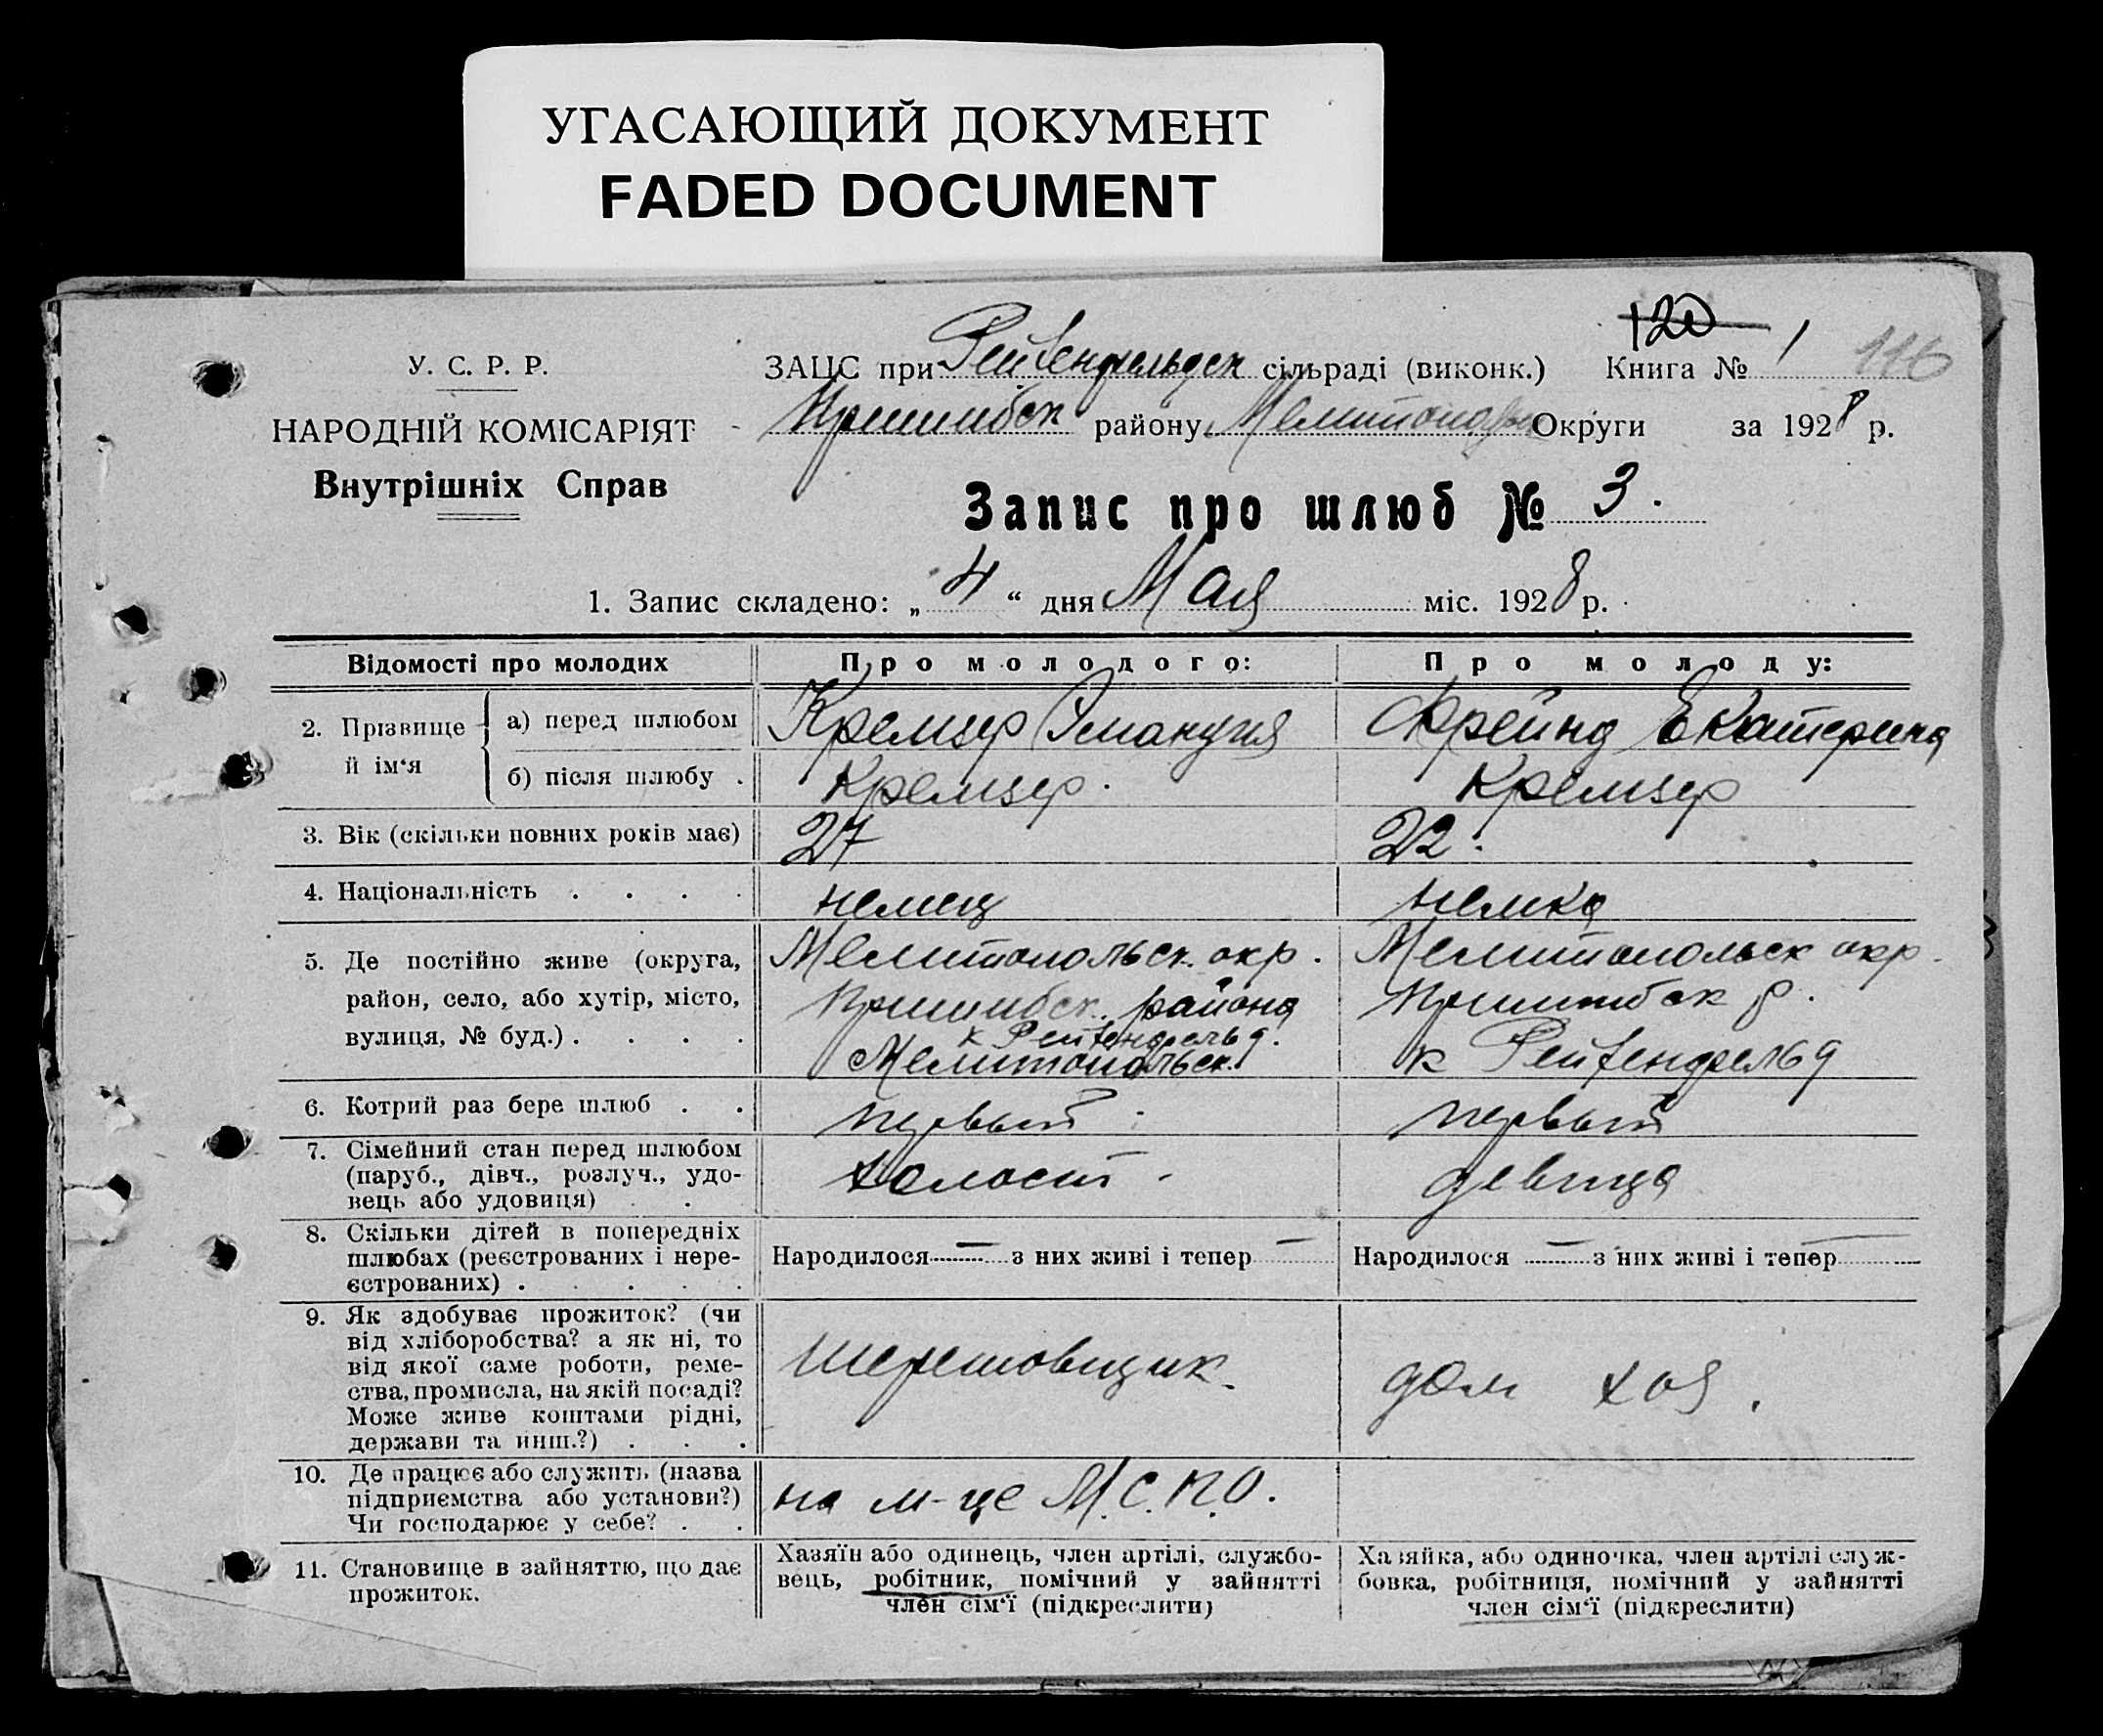 УГАСАЮЩИЙ ДОКУМЕНТ
FADED DOCUMENT
120 1 116
У. С. Р. Р.
НАРОДНІЙ КОМІСАРІЯТ
Внутрішніх Справ
ЗАЦС при Рейхенфельдск сільраді (виконк.) Книга №
Пришибск району Мелитопольск Округи за 1928 р.
Запис про шлюб № 3.
1. Запис складено: „ 4 “ дня Мая міс. 1928 р.
Відомості про молодих
Про молодого:
Про молоду:
2. Прізвище й ім‘я
а) перед шлюбом
Кремзер Эмануил
Фрейнд Екатерина
б) після шлюбу .
Кремзер.
Кремзер
3. Вік (скільки повних років має)
27
22.
4. Національність . . . .
немец
немка
5. Де постійно живе (округа,
район, село, або хутір, місто,
вулиця, № буд.) . . . .
Мелитопольск. окр.
Пришибск. района
к Рейхенфельд.
Мелитопольск.
Мелитопольск окр.
Пришибск р.
к Рейхенфельд
6. Котрий раз бере шлюб . .
первый
первый
7. Сімейний стан перед шлюбом
(паруб., дівч., розлуч., удо-
вець або удовиця) . .
холост
девица
8. Скільки дітей в попередніх
шлюбах (реєстрованих і нере-
єстрованих) . . . . .
Народилося — з них живі і тепер —
Народилося — з них живі і тепер —
9. Як здобуває прожиток? (чи
від хліборобства? а як ні, то
від якої саме роботи, реме-
ства, промисла, на якій посаді?
Може живе коштами рідні,
держави та инш.?) . . .
шеретовщик.
дом хоз.
10. Де працює або служить (назва
підприємства або установи?)
Чи господарює у себе? . .
на м-це М.С.П.О.
11. Становище в зайняттю, що дає
прожиток.
Хазяїн або одинець, член артілі, службо-
вець, робітник, помічний у зайнятті
член сім‘ї (підкреслити)
Хазяйка, або одиночка, член артілі служ-
бовка, робітниця, помічний у зайнятті
член сім‘ї (підкреслити)